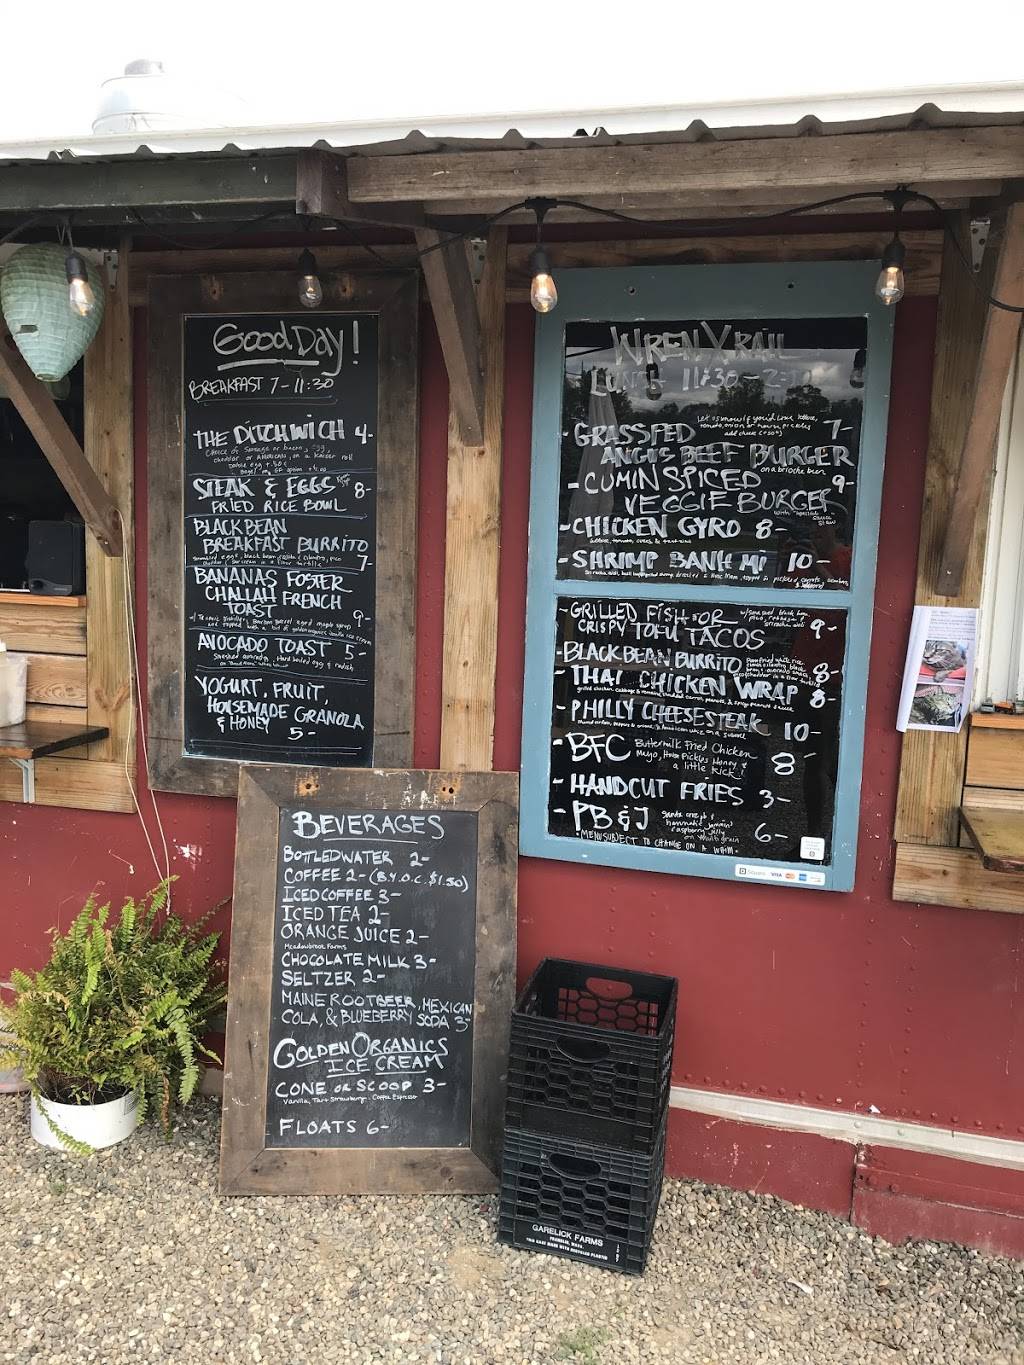 Good Day!
BREAKFAST 7-11:30
THE DITCHWICH 4-
Choice of Sausage or bacon, egg,
cheddar or American, on a kaiser roll
STEAK & EGGS 8-
FRIED RICE BOWL
BLACK BEAN
BREAKFAST BURRITO
7-
BANANAS FOSTER
CHALLAH FRENCH
TOAST
9-
AVOCADO TOAST 5-
Smashed avocado, Hard boiled egg & radish
YOGURT, FRUIT,
HOMEMADE GRANOLA
& HONEY
5-
BEVERAGES
BOTTLED WATER 2-
COFFEE 2- (B.Y.O.C. $1.50)
ICED COFFEE 3-
ICED TEA 2-
ORANGE JUICE 2-
Meadowbrook Farms
CHOCOLATE MILK 3-
SELTZER 2-
MAINE ROOTBEER, MEXICAN
COLA, & BLUEBERRY SODA 3-
GOLDEN ORGANICS
ICE CREAM
CONE OR SCOOP 3-
Vanilla, Tart Strawberry, Coffee Espresso
FLOATS 6-
WREN X RAIL
LUNCH 11:30-
Let us know if you'd like lettuce,
tomato, onion or house pickles
add cheese (+50¢)
- GRASSFED 7-
ANGUS BEEF BURGER
on a brioche bun
- CUMIN SPICED 9-
VEGGIE BURGER
with special
sauce
slaw
- CHICKEN GYRO 8-
- SHRIMP BANH MI 10-
- GRILLED FISH OR
CRISPY TOFU TACOS 9-
- BLACK BEAN BURRITO 8-
- THAI CHICKEN WRAP 8-
- PHILLY CHEESESTEAK 10-
- BFC Buttermilk Fried Chicken
Mayo, House Pickles Honey &
a little kick! 8-
- HANDCUT FRIES 3-
- PB & J 6-
raspberry jelly
on multi grain
MENU SUBJECT TO CHANGE ON A WHIM.
Square VISA
GARELICK FARMS
FRANKLIN, MASS.